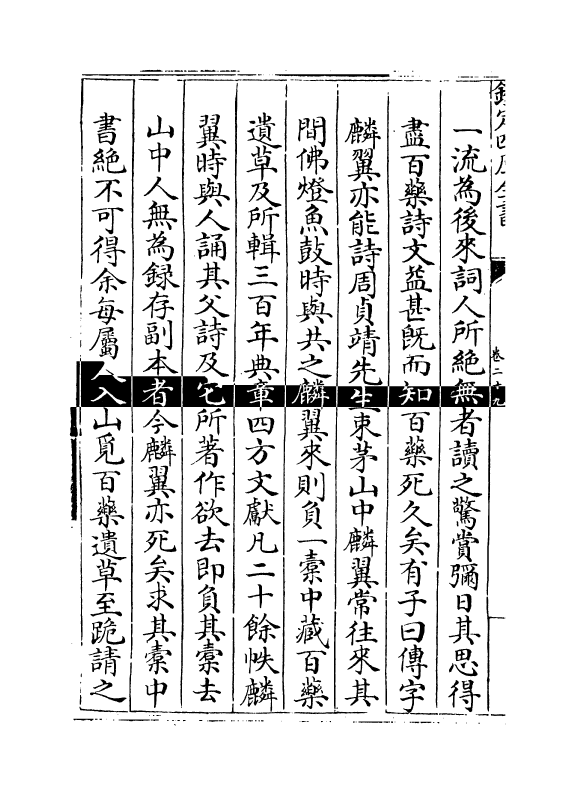 欽定四庫全書
卷二百九
一流為後來詞人所絶無者讀之驚賞彌日其思得
盡百藥詩文益甚既而知百藥死久矣有子曰傳字
麟翼亦能詩周貞靖先生束茅山中麟翼常往來其
間佛燈魚鼓時與共之麟翼來則負一橐中藏百藥
遺草及所輯三百年典章四方文獻凡二十餘帙麟
翼時與人誦其父詩及它所著作欲去即負其橐去
山中人無為録存副本者今麟翼亦死矣求其橐中
書絶不可得余每屬人入山覓百藥遺草至跪請之